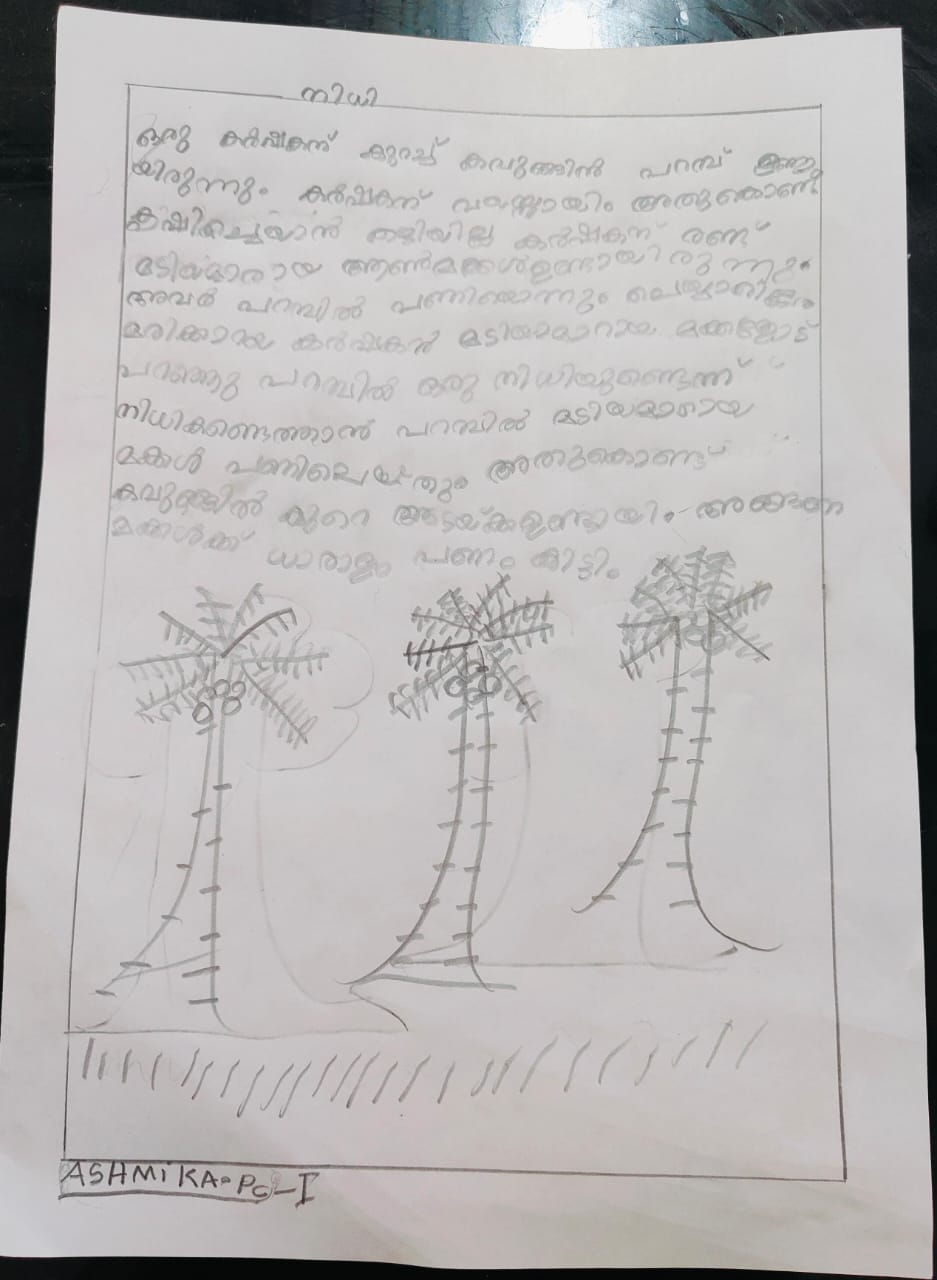 നിധി
ഒരു കർഷകന് കുറച്ച് കവുങ്ങിൻ പറമ്പ് ഉണ്ടാ
യിരുന്നും. കർഷകന് വയസ്സായിം അതുകൊണ്ട്
കൃഷിച്ചെയാൻ കയിയില്ല കർഷകന് രണ്ട്
മടിയന്മാരായ ആൺമക്കൾഉണ്ടായിരുന്നും.
അവർ പറമ്പിൽ പണിയൊന്നും ചെയ്യാറില്ലം
മരിക്കാറായ കർഷകൻ മടിയാമാറായ മക്കളോട്
പറഞ്ഞു പറമ്പിൽ ഒരു നിധിയുണ്ടെന്ന്
നിധികണ്ടെത്താൻ പറമ്പിൽ മടിയമാരായ
മക്കൾ പണിചെയ്തും അതുകൊണ്ട്
കവുങ്ങിൽ കുറെ അടയ്ക്കഉണ്ടായിം. അങ്ങനെ
മക്കൾക്ക് ധാരാളം പണം കിട്ടി.
ASHMIKA.PC-I